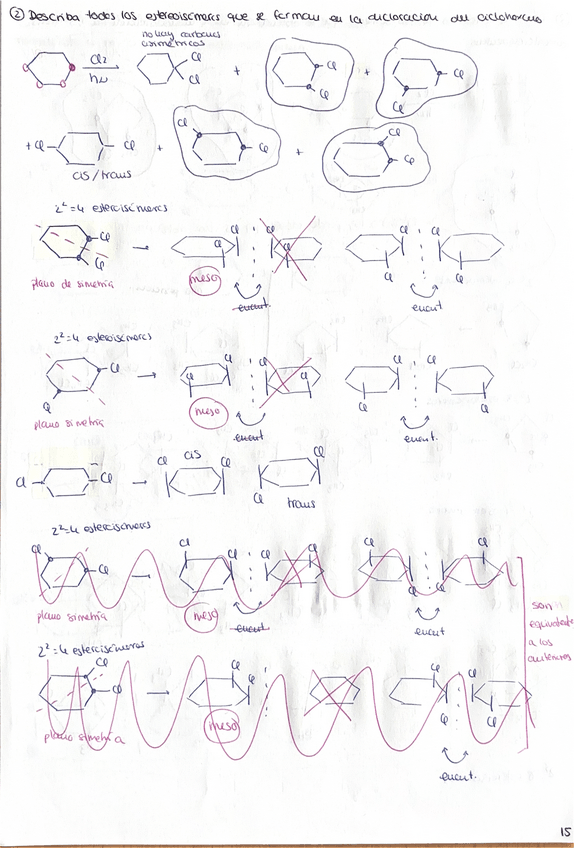 ② Describa todos los estereoisómeros que se forman en la dicloración del ciclohexano
no hay carbonos
asimétricos
Cl2
hν
Cl
Cl
+
Cl
Cl
+
Cl
Cl
+ Cl
Cl
+
Cl
Cl
+
Cl
Cl
cis/trans
2²=4 estereoisómeros
Cl
Cl
Cl
Cl
Cl
Cl
Cl
Cl
Cl
Cl
plano de simetría
meso
enant.
enant
2²=4 estereoisómeros
Cl
Cl
Cl
Cl
Cl
Cl
Cl
Cl
Cl
Cl
plano simetría
meso
enant.
enant.
Cl
Cl
Cl
cis
Cl
Cl
Cl
trans
2²=4 estereoisómeros
Cl
Cl
Cl
Cl
Cl
Cl
Cl
Cl
Cl
Cl
plano simetría
meso
enant
enant
son
equivalentes
a los
anteriores
2²=4 estereoisómeros
Cl
Cl
Cl
Cl
Cl
Cl
Cl
Cl
plano simetría
meso
enant.
15